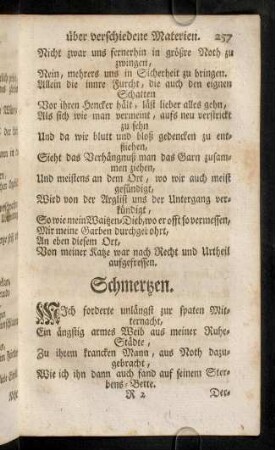 über verschiedene Materien. 257
Nicht zwar uns fernerhin in größre Noth zu
zwingen,
Nein, mehrers uns in Sicherheit zu bringen.
Allein die innre Furcht, die auch den eignen
Schatten
Vor ihren Hencker hält, läst lieber alles gehn,
Als sich wie man vermeint, aufs neu verstrickt
zu sehn
Und da wie blutt und bloß gedencken zu ent-
fliehen.
Sieht das Verhängnuß man das Garn zusam-
men ziehen,
Und meistens an dem Ort, wo wir auch meist
gesündigt,
Wird von der Arglist uns der Untergang ver-
kündigt,
So wie mein Waitzen-Dieb, wo er offt so vermessen,
Mir meine Garben durchgeohrt,
An eben diesem Ort,
Von meiner Katze war nach Recht und Urtheil
aufgefressen.
Schmertzen.
MIch forderte unlängst zur spaten Mit-
ternacht,
Ein ängstig armes Weib aus meiner Ruhe-
Städte,
Zu ihrem krancken Mann, aus Noth dazu-
gebracht,
Wie ich ihn dann auch fand auf seinem Ster-
bens-Bette.
R 2 Der-